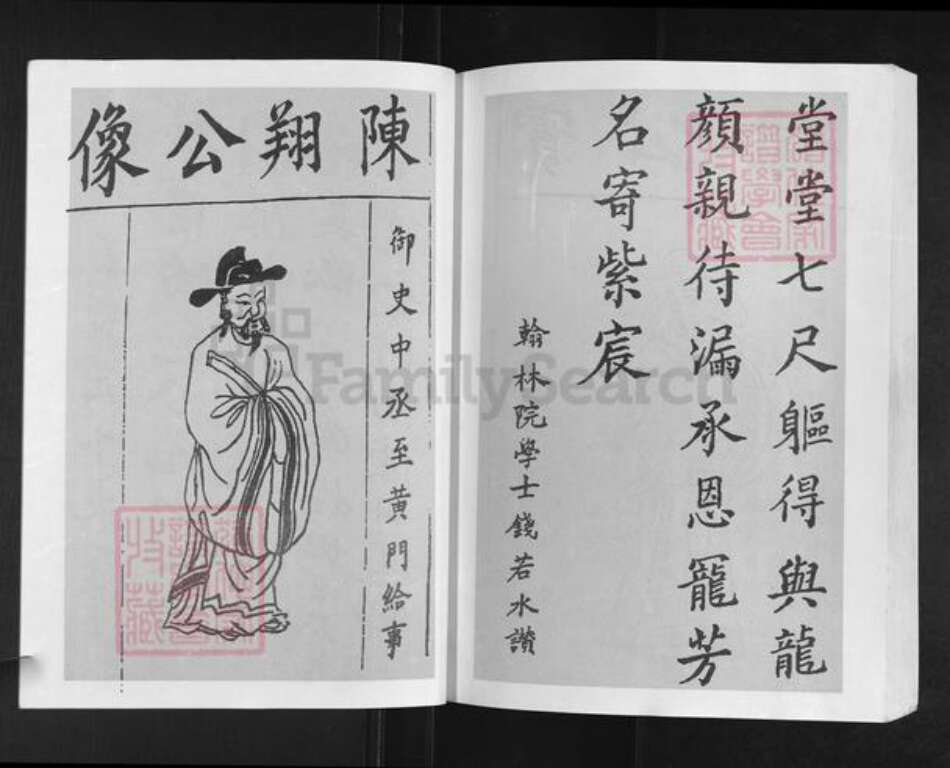 堂堂七尺軀得與龍
顏親待漏承恩寵芳
名寄紫宸
翰林院學士錢若水讚
陳翔公像
御史中丞至黃門給事
FamilySearch